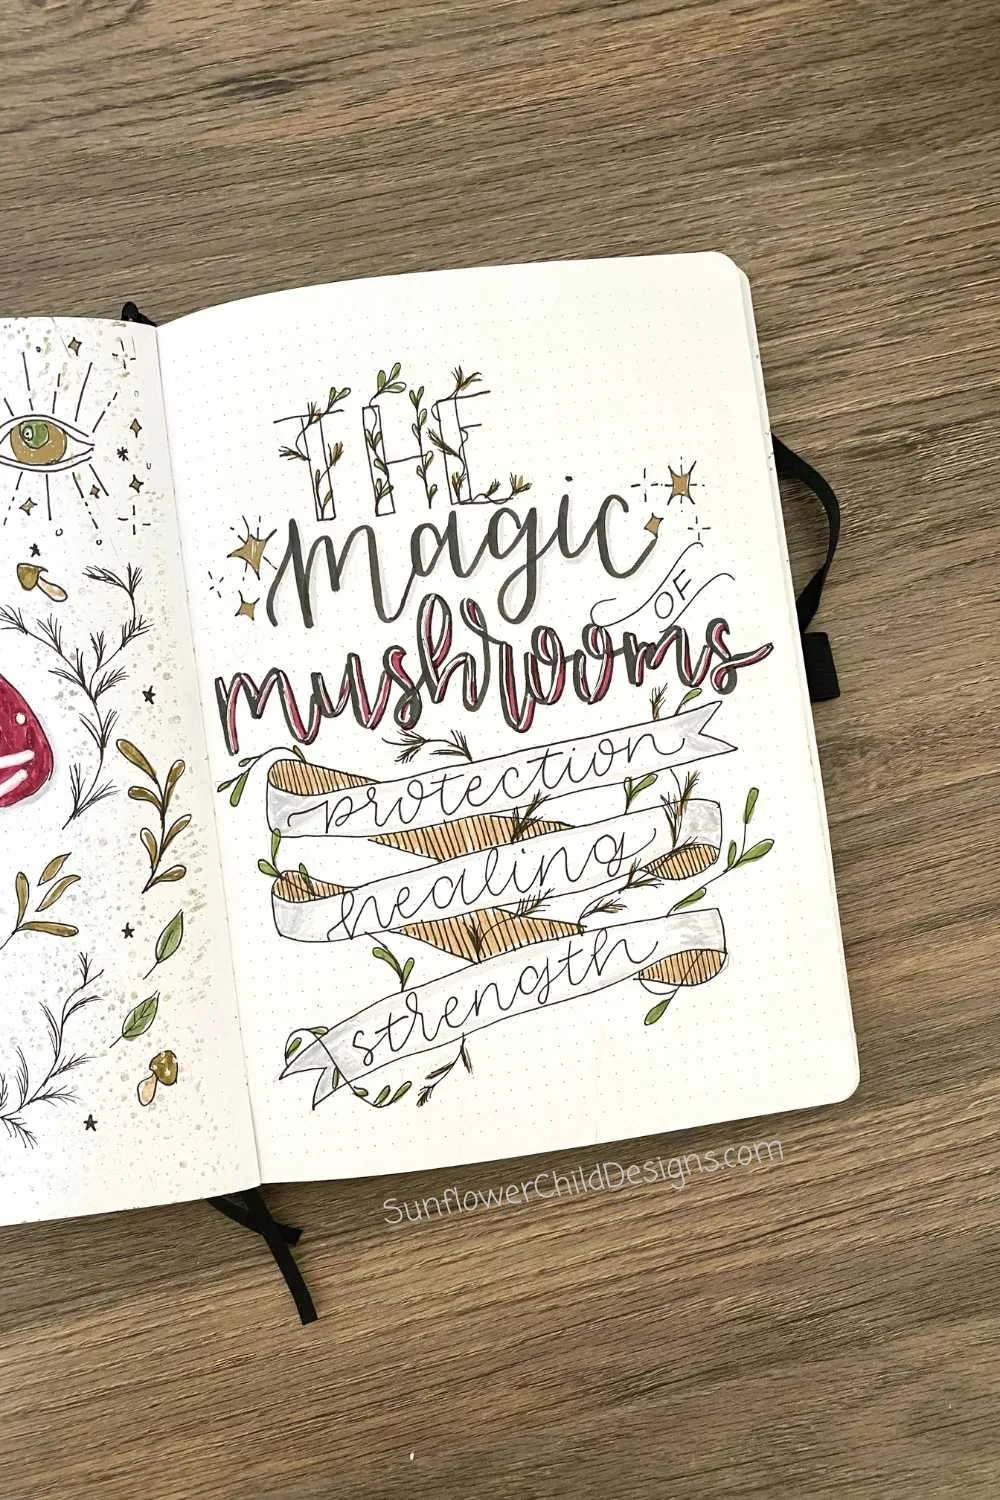 THE
magic
OF
mushrooms
protection
healing
strength
SunflowerChildDesigns.com